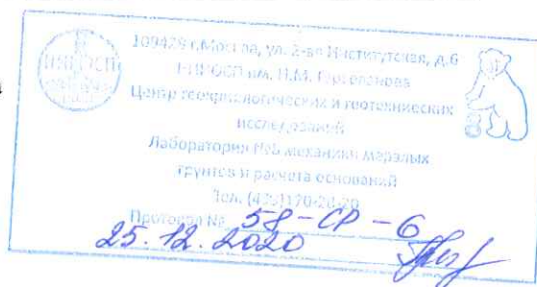 109428 г.Москва, ул. 2-ая Институтская, д.6
НИИОСП им. Н.М. Герсеванова
Центр геокриологических и геотехнических
исследований
Лаборатория №6 механики мерзлых
грунтов и расчета оснований
Тел. (495)170-28-20
Протокол № 58-СР-6
25.12.2020